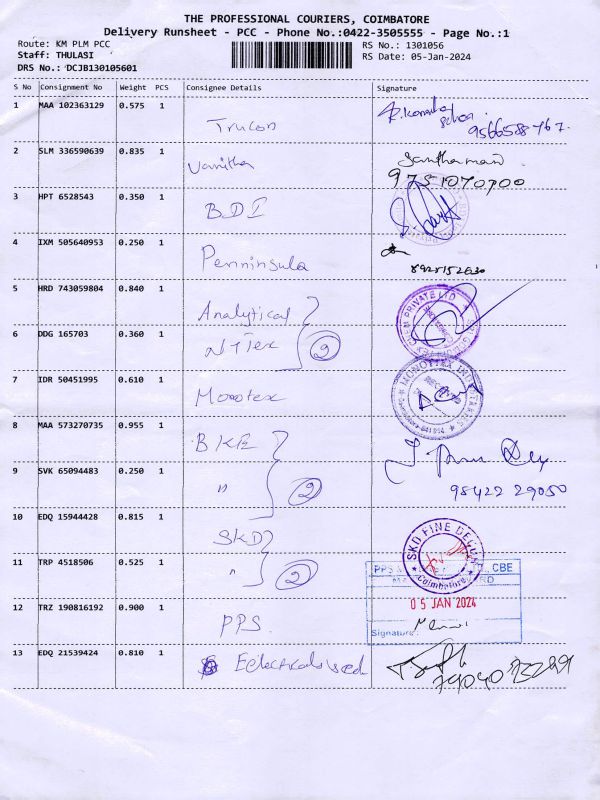 THE PROFESSIONAL COURIERS, COIMBATORE
Delivery Runsheet - PCC - Phone No.:0422-3505555 - Page No.:1
Route: KM PLM PCC
RS No.: 1301056
Staff: THULASI
RS Date: 05-Jan-2024
DRS No.: DCJB130105601
S No Consignment No Weight PCS Consignee Details Signature
1 MAA 102363129 0.575 1 Trucon
9566588767.
2 SLM 336590639 0.835 1 Vanitha
9751070700
3 HPT 6528543 0.350 1 BDI
4 IXM 505640953 0.250 1 Penninsula
5 HRD 743059804 0.840 1 Analytical
6 DDG 165703 0.360 1 ②
7 IDR 50451995 0.610 1 Monotex
8 MAA 573270735 0.955 1 BKE
9 SVK 65094483 0.250 1 " ②
98422 29050
10 EDQ 15944428 0.815 1 SKD
SKD FINE
Coimbatore
11 TRP 4518506 0.525 1 " ②
PPS CBE
05 JAN 2024
12 TRZ 190816192 0.900 1 PPS
Signature:
13 EDQ 21539424 0.810 1